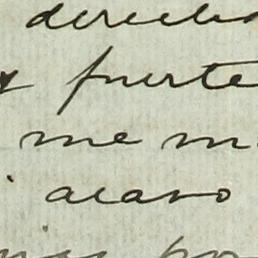 derecho
y fuerte
me m
acaso
por